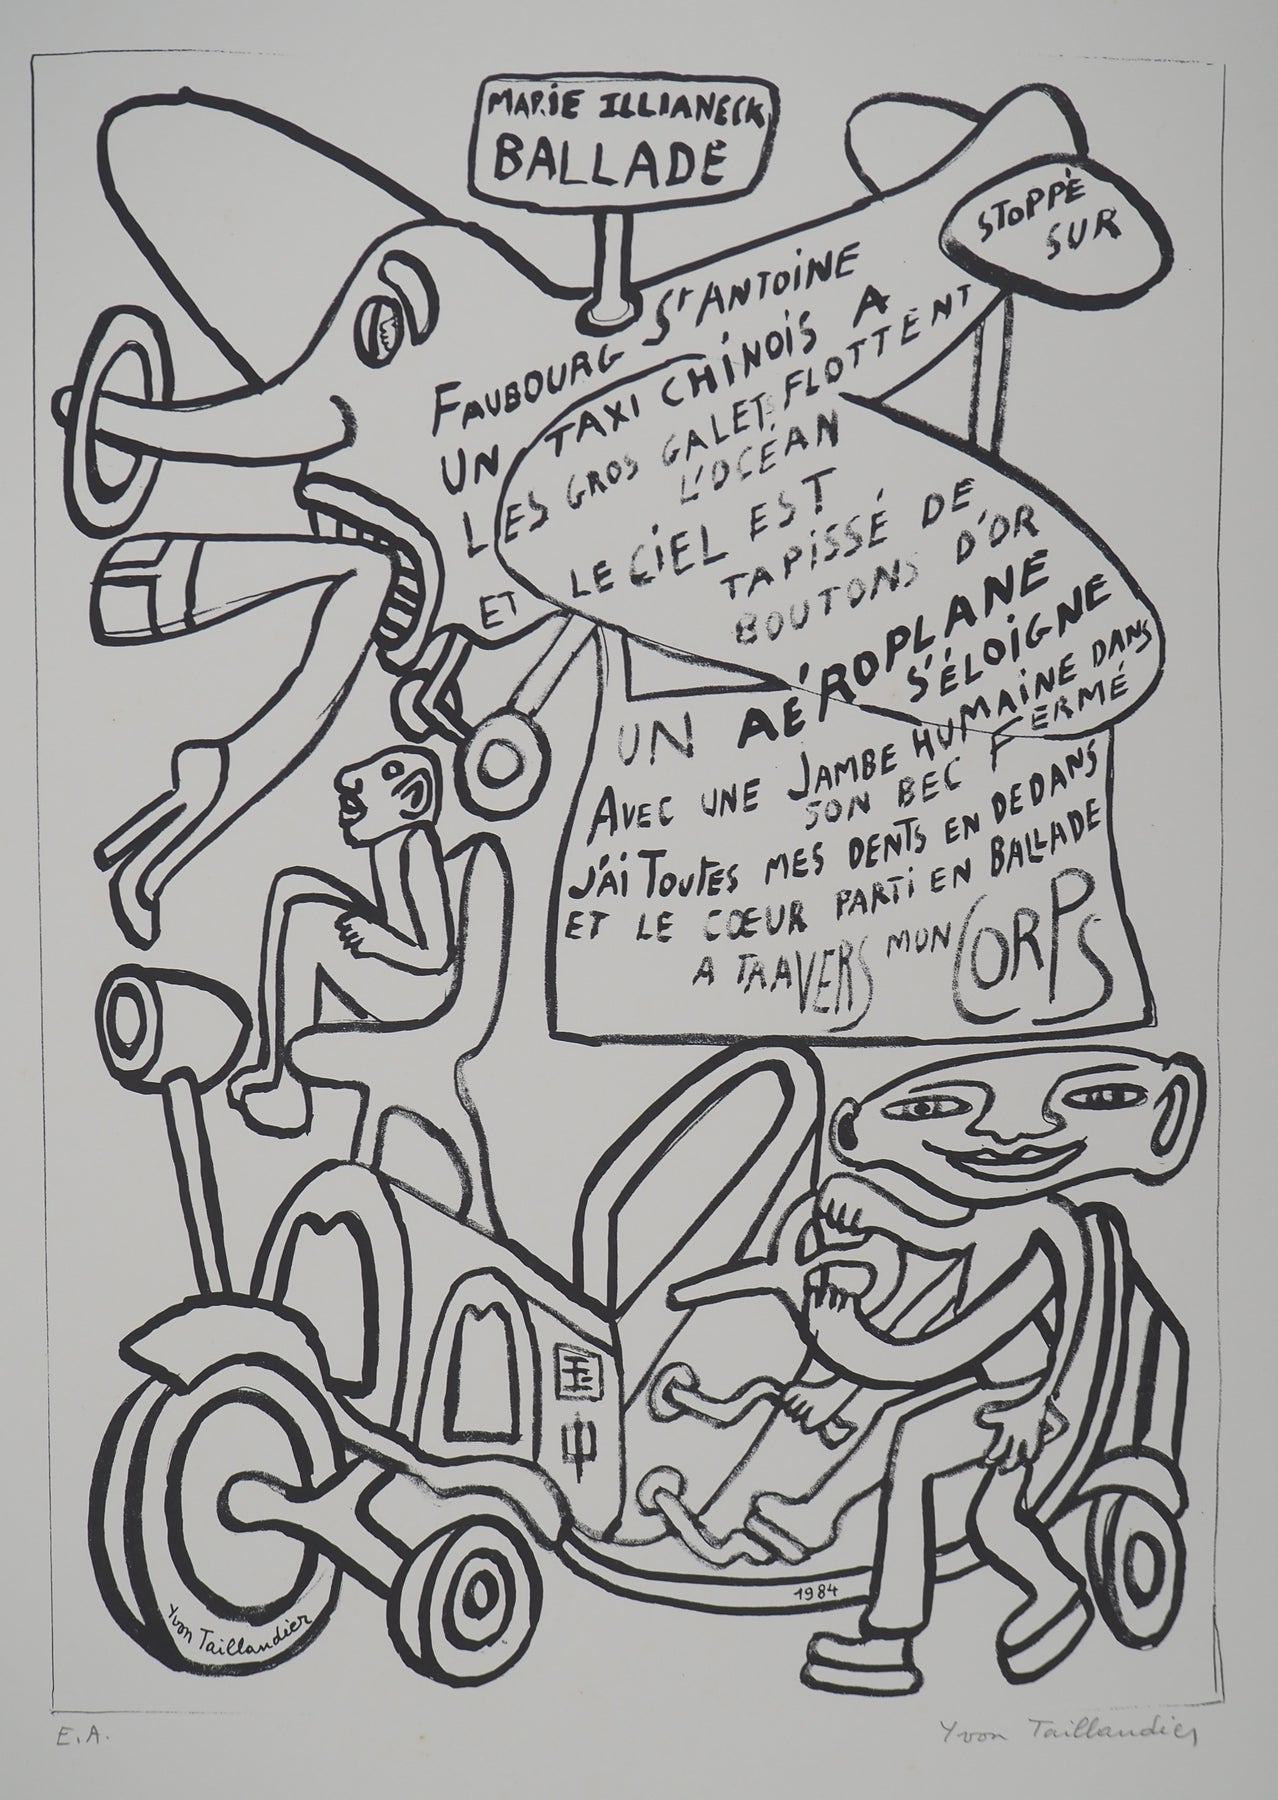 MARIE ILLIANECK
BALLADE
FAUBOURG St ANTOINE
UN TAXI CHINOIS A
STOPPÉ
SUR
LES GROS GALETS FLOTTENT
L'OCÉAN
ET LE CIEL EST
TAPISSÉ DE
BOUTONS D'OR
UN AÉROPLANE
S'ÉLOIGNE
AVEC UNE JAMBE HUMAINE DANS
SON BEC FERMÉ
J'AI TOUTES MES DENTS EN DEDANS
ET LE CŒUR PARTI EN BALLADE
A TRAVERS MON CORPS
国
中
1984
Yvon Taillandier
E.A. Yvon Taillandier